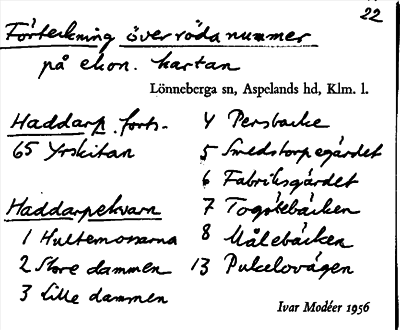 22
Förteckning över röda nummer
på ekon. kartan
Lönneberga sn, Aspelands hd, Klm. l.
Haddarp forts.
65 Yrskitan
Haddarpekvarn
1 Hultemossarna
2 Store dammen
3 Lille dammen
4 Persbacke
5 Smedstorpegärdet
6 Fabriksgärdet
7 Togölebäcken
8 Målebäcken
13 Pukelovägen
Ivar Modéer 1956